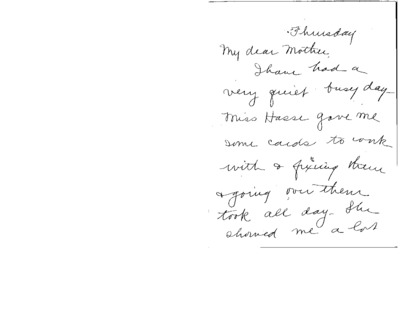 Thursday
My dear Mother,
I have had a
very quiet busy day-
Miss Hasse gave me
some cards to work
with & fixing them
& going over them
took all day. She
showed me a lot